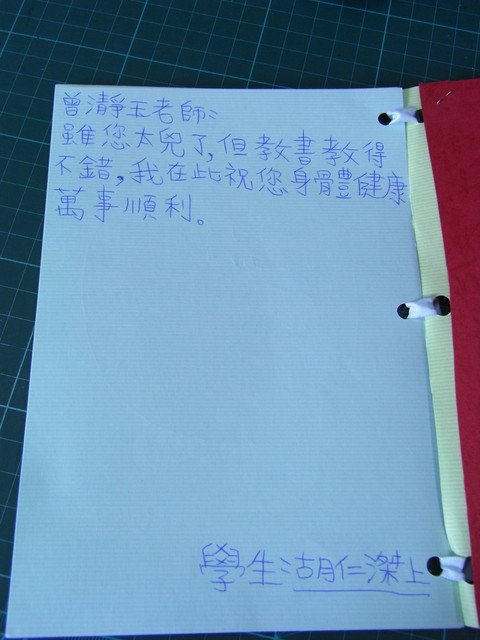 曾瀞玉老師:
雖您太兇了,但教書教得
不錯,我在此祝您身體健康
萬事順利。
學生:胡仁滐上